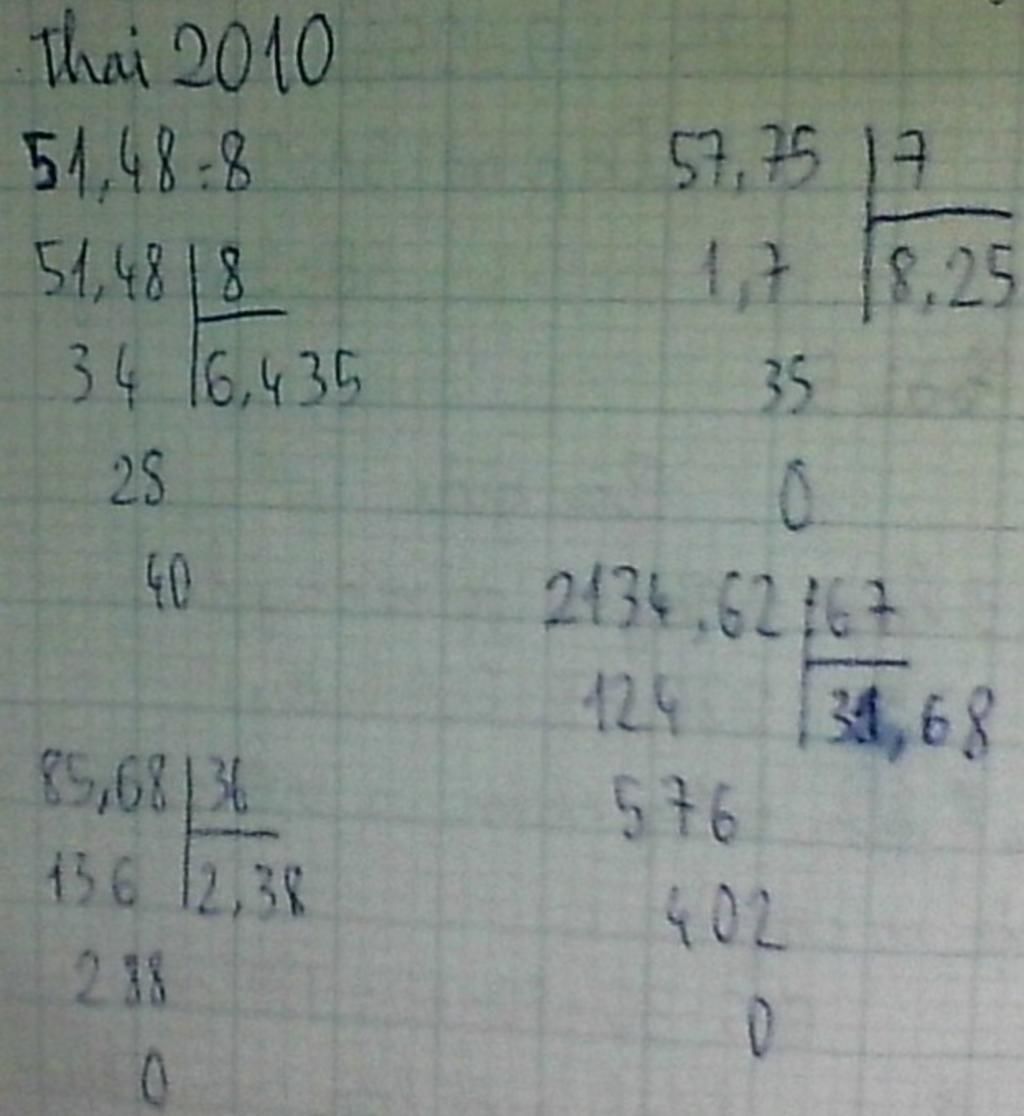 Thai 2010
51,48:8
51,48 8
34 6,435
28
40
57,75 7
1,7 8,25
35
0
85,68 36
136 2,38
288
0
2134,62 67
124 31,68
576
402
0